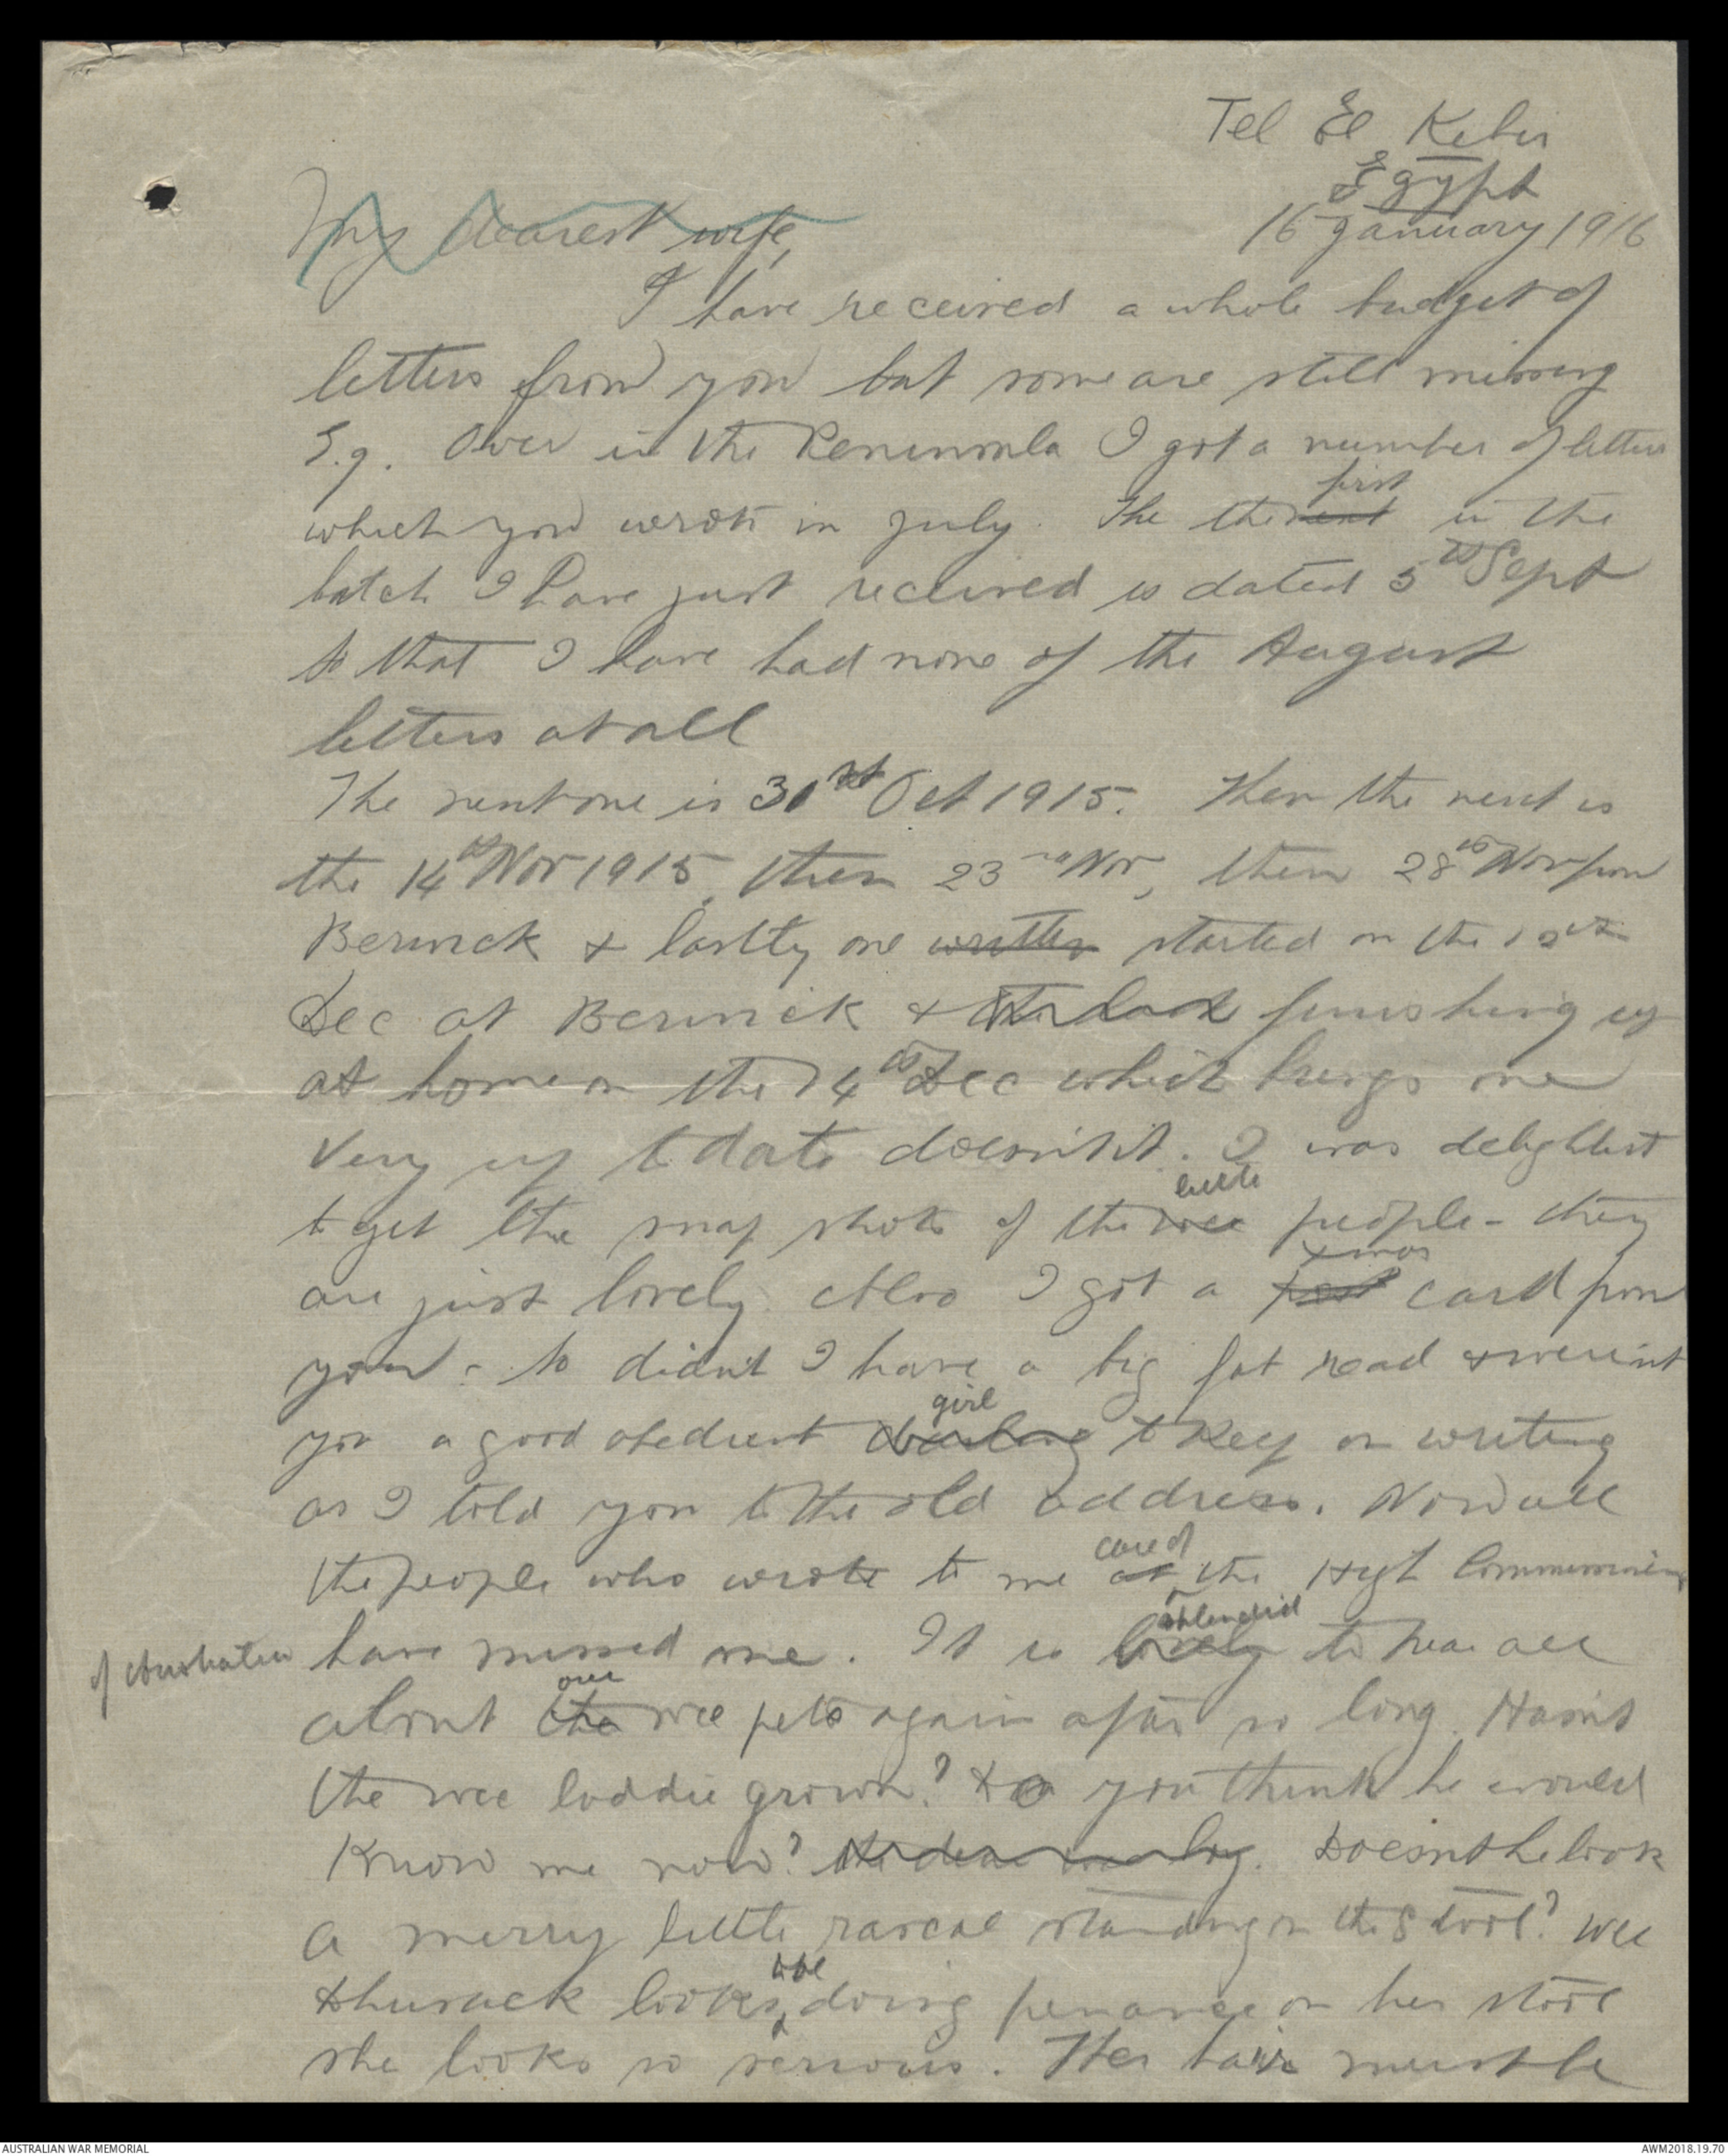 Tel El Kebir
Egypt
16 January 1916
My dearest wife,
I have received a whole budget of
letters from you but some are still missing
E.g. Over in the Peninsula I got a number of letters
which you wrote in July. The first in the
batch I have just received is dated 5th Sept
so that I have had none of the August
letters at all
The next one is 31st Oct 1915. Then the next is
the 14th Nov 1915, then 23rd Nov, then 28th Nov from
Berwick & lastly one written started on the
Dec at Berwick & finishing up
at home on the 14th Dec which brings me
very up to date doesn't it. I was delighted
to get the snap shots of the wee little people - they
are just lovely. Also I got a post xmas card from
you - so didn't I have a big fat read & weren't
you a good obedient darling girl to keep on writing
as I told you to the old address. Now all
the people who wrote to me at care of the High Commissioner
of Australia have missed me. It is lovely splendid to hear all
about the our wee pets again after so long. Hasn't
the wee laddie grown? Do you think he would
know me now? the dear wee boy. Doesn't he look
a merry little rascal standing on the stool? Wee
looks like doing penance on her stool
she looks so serious. Her hair must be
AUSTRALIAN WAR MEMORIAL
AWM2018.19.70